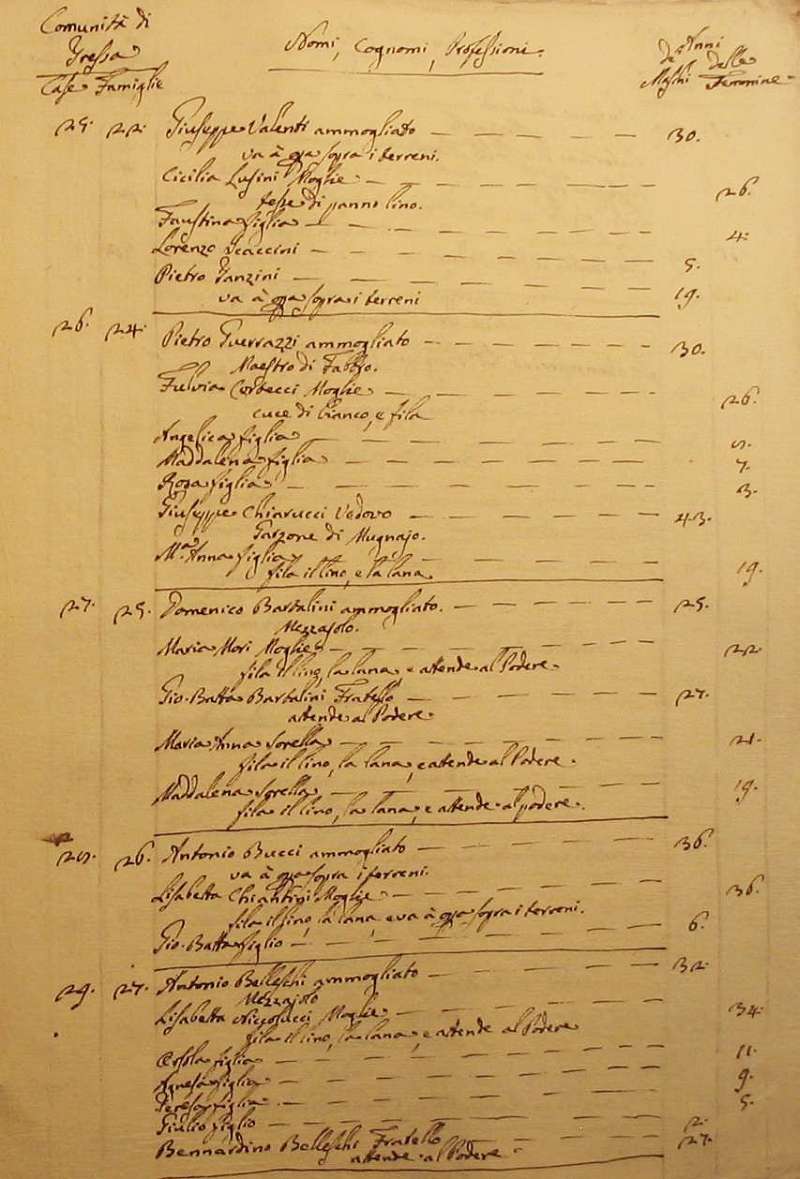 Comunità di
Gressa
Nomi, Cognomi, Professioni.
Anni
de' Maschi delle Femmine
Case Famiglie
25. 22. Giuseppe Valenti ammogliato 30.
va à opa sopra i terreni.
Cicilia Lusini Moglie 26.
tesse di panno lino.
Faustina figlia 4.
Lorenzo Scaccini 5.
Pietro Tanzini 19.
va à opa sopra i terreni
26. 24. Pietro Guerrazzi ammogliato 30.
Maestro di Fabbro.
Fulvia Moglie 26.
cuce di bianco, e fila
Angelica figlia
Maddalena figlia 7.
Rosa figlia 3.
Giuseppe Chiarucci Vedovo 43.
Garzone di Mugnajo.
M.a Anna figlia 19.
fila il lino, e la lana
27. 25. Domenico Bartalini ammogliato. 25.
Mezzajolo.
Maria Mori Moglie 22.
fila il lino, la lana, e attende al Podere.
Gio. Batta Bartalini Fratello 27.
attende al Podere
Maria Anna Sorella 21.
fila il lino, la lana, e attende al Podere.
Maddalena Sorella 19.
fila il lino, la lana, e attende al podere.
26. Antonio Bucci ammogliato 36.
va à opa sopra i terreni.
Lisabetta Chiantini Moglie 36.
fila il lino, la lana e va à opa sopra i terreni.
Gio. Batta figlio 6.
29. 27. Antonio Belleschi ammogliato 32.
Mezzajolo
Lisabetta Niccolucci Moglie 34.
fila il lino, la lana, e attende al Podere
Orsola figlia 11.
Agnesa figlia 9.
Teresa figlia 5.
Giulio figlio 2.
Bernardino Belleschi Fratello 27.
attende al Podere